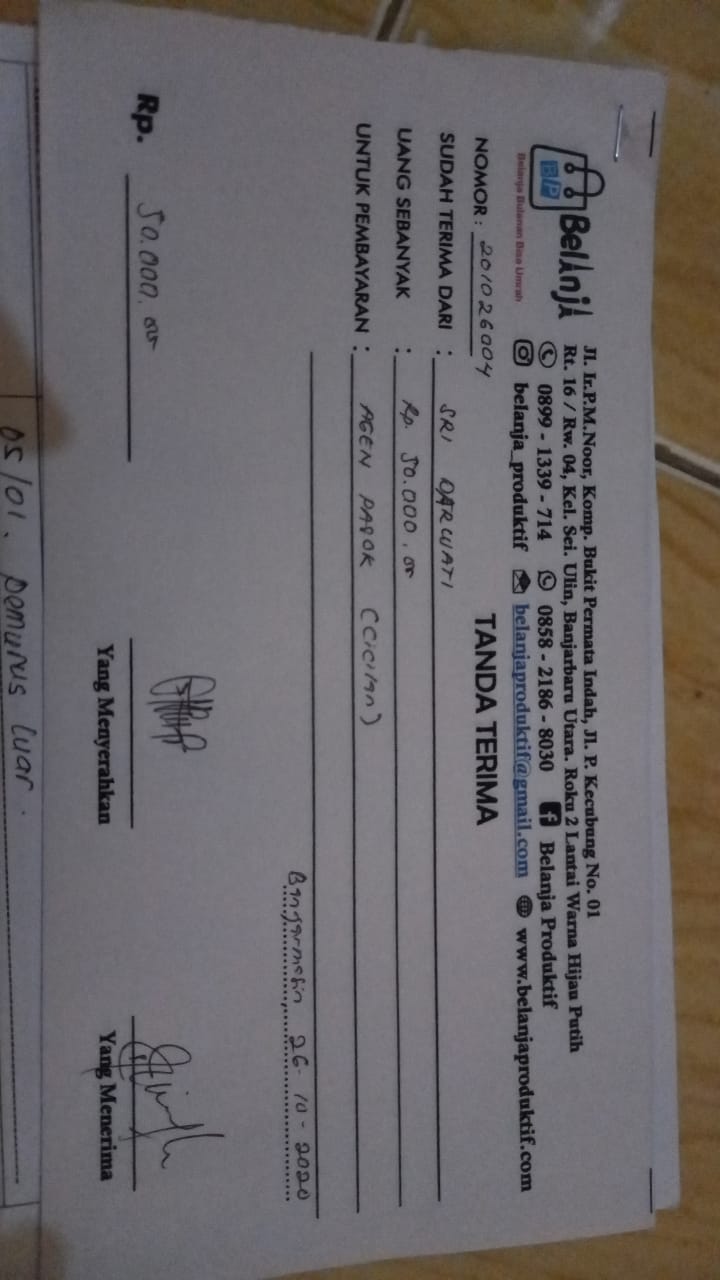 Belanja
BP
Belanja Bulanan Bisa Umrah
Jl. Ir.P.M.Noor, Komp. Bukit Permata Indah, Jl. P. Kecubung No. 01
Rt. 16 / Rw. 04, Kel. Sei. Ulin, Banjarbaru Utara. Roku 2 Lantai Warna Hijau Putih
0899 - 1339 - 714 0858 - 2186 - 8030 Belanja Produktif
belanja_produktif belanjaproduktif@gmail.com www.belanjaproduktif.com
TANDA TERIMA
NOMOR : 201026004
SUDAH TERIMA DARI : SRI DARWATI
UANG SEBANYAK : Rp. 50.000,00
UNTUK PEMBAYARAN : AGEN PASOK (Cicilan)
Banjarmasin 26-10-2020
Rp. 50.000,00
Yang Menyerahkan Yang Menerima
05/01. Pemurus luar.